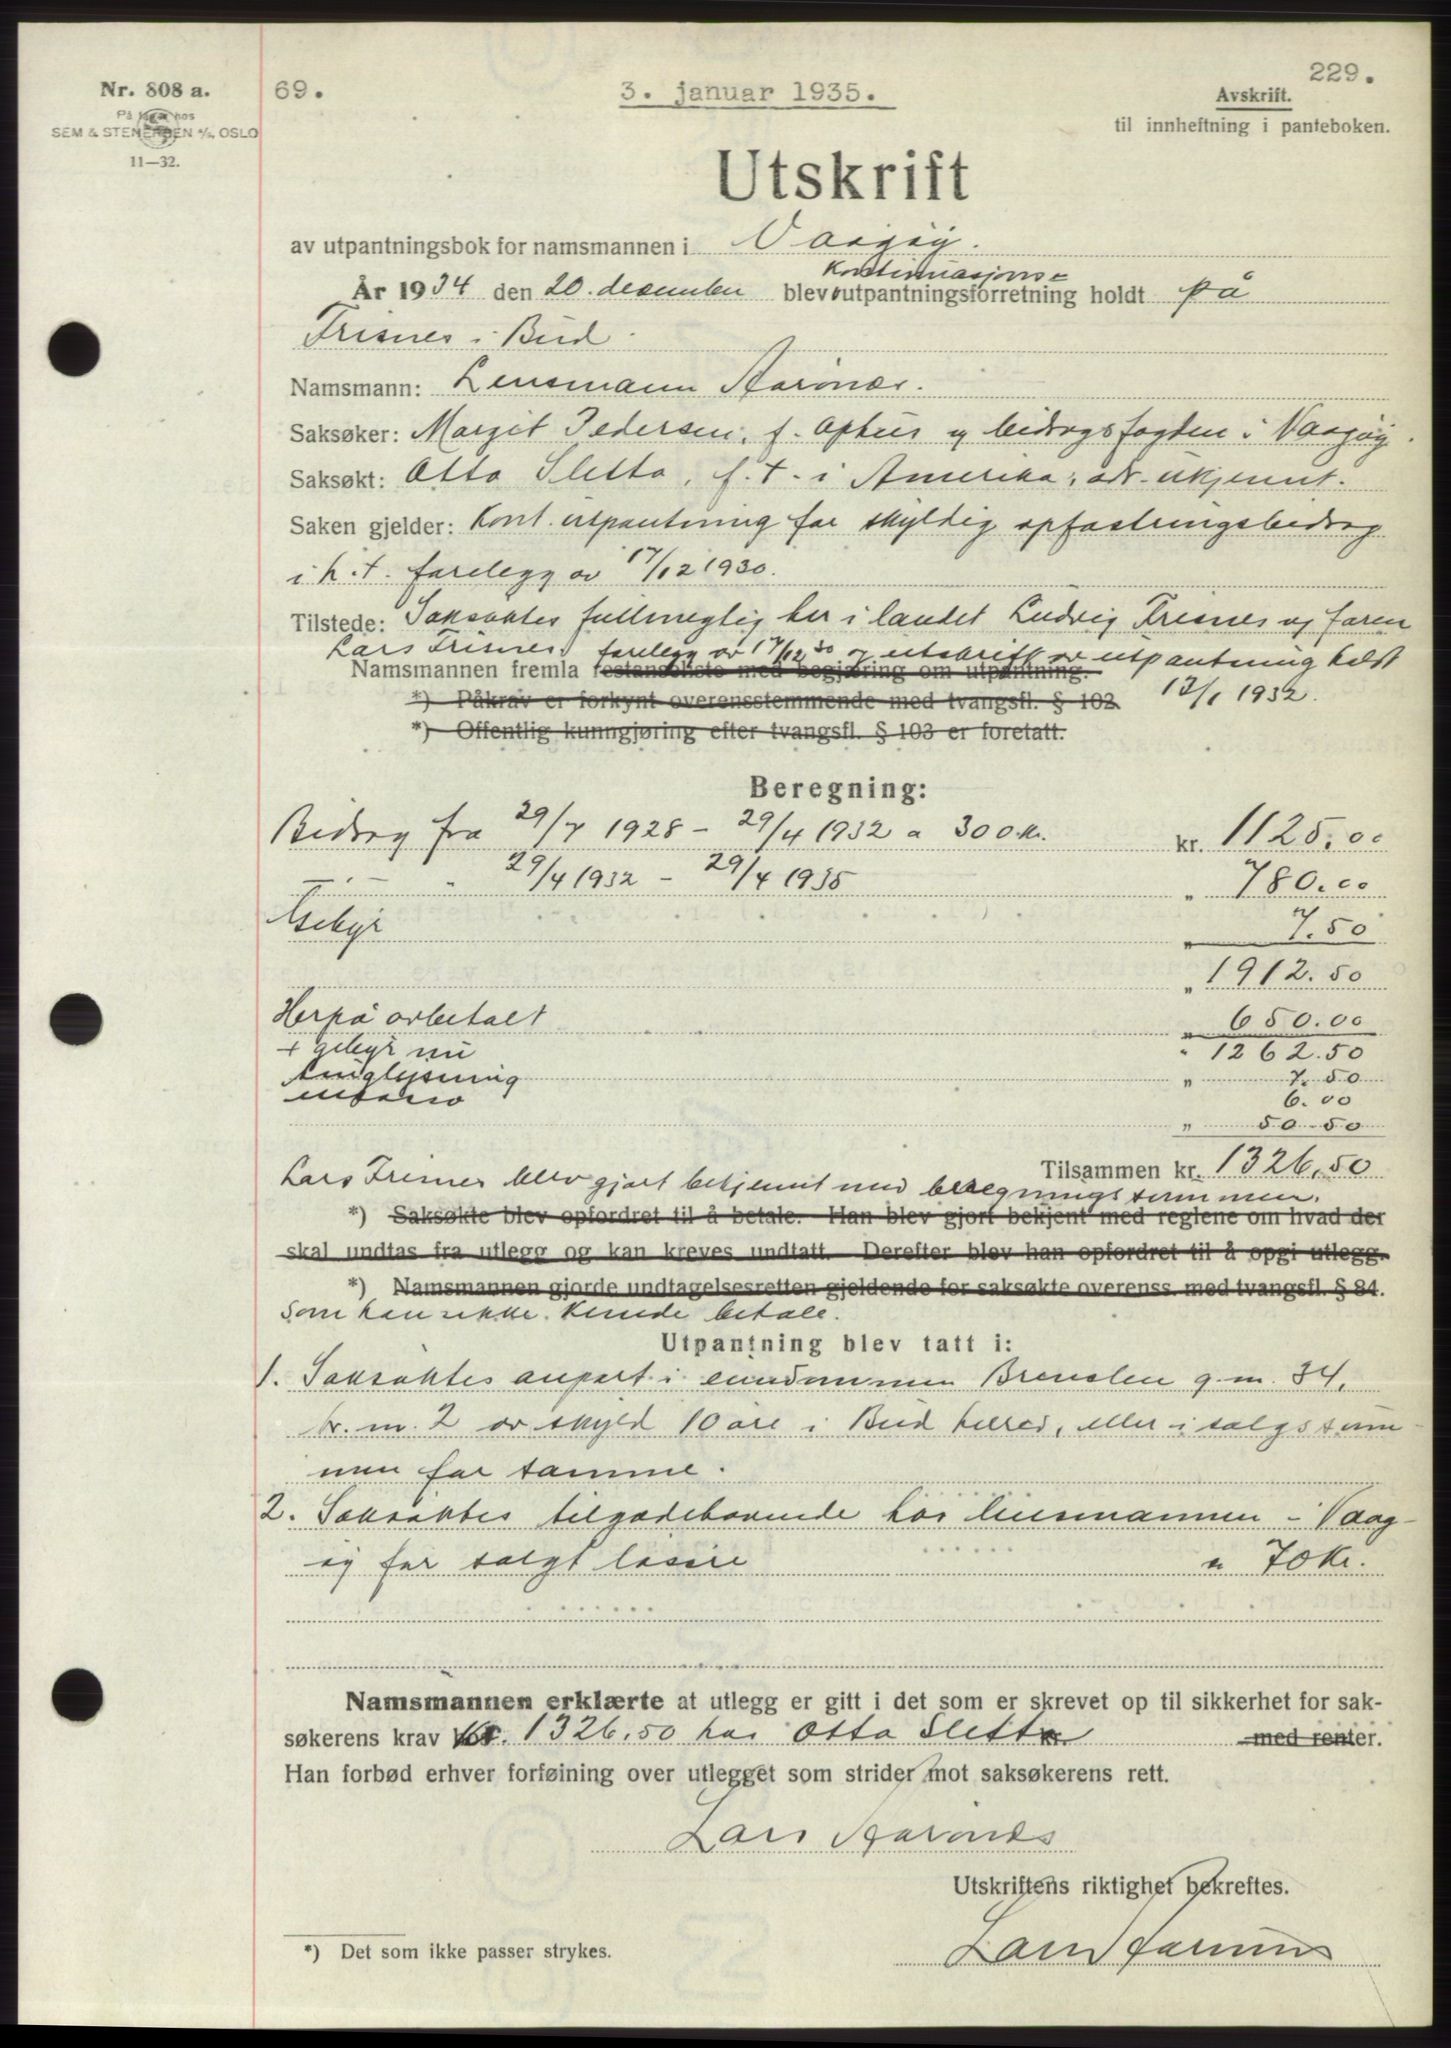 Nr. 808 a.
På lager hos
SEM & STENERSEN A/S, OSLO
11—32.
69.
3. januar 1935.
229.
Avskrift.
til innheftning i panteboken.
Utskrift
av utpantningsbok for namsmannen i Vaagøy.
Kontinuasjons-
År 1934 den 20. desember blev utpantningsforretning holdt på
Frisnes i Bud.
Namsmann: Lensmann Aarønes.
Saksøker: Margit Pedersen, f. Ophus og bidragsfogden i Vaagøy.
Saksøkt: Otto Sletta, f. t. i Amerika, adr. ukjennt.
Saken gjelder: Kont. utpantning for skyldig opfostringsbidrag
i h. t. forelegg av 17/12 1930.
Tilstede: Saksøktes fullmegtig her i landet Ludvig Frisnes og faren
Lars Frisnes, forelegg av 17/12 30 og utskrift av utpantning holdt
Namsmannen fremla restanseliste med begjæring om utpantning.
13/1 1932.
*) Påkrav er forkynt overensstemmende med tvangsfl. § 102.
*) Offentlig kunngjøring efter tvangsfl. § 103 er foretatt.
Beregning:
Bidrag fra 29/7 1928 - 29/4 1932 a 300 kr. kr. 1125.00
— . — " 29/4 1932 - 29/4 1935 " 780.00
Gebyr " 7.50
" 1912.50
Herpå avbetalt " 650.00
+ gebyr nu " 1262.50
tinglysning " 7.50
6.00
" 50.50
Tilsammen kr. 1326,50
Lars Frisnes blev gjort bekjennt med beregningssummen.
*) Saksøkte blev opfordret til å betale. Han blev gjort bekjent med reglene om hvad der
skal undtas fra utlegg og kan kreves undtatt. Derefter blev han opfordret til å opgi utlegg.
*) Namsmannen gjorde undtagelsesretten gjeldende for saksøkte overenss. med tvangsfl. § 84.
som han ikke kunde betale.
Utpantning blev tatt i:
1. Saksøktes anpart i eiendommen Brenslen g. nr. 34,
br. nr. 2 av skyld 10 øre i Bud herred, eller i salgssum-
men for samme.
2. Saksøktes tilgodehavende hos lensmannen i Vaag-
øy for solgt løsøre " 70 kr.
Namsmannen erklærte at utlegg er gitt i det som er skrevet op til sikkerhet for sak-
søkerens krav kr. 1326,50 hos Otto Sletta med renter.
Han forbød erhver forføining over utlegget som strider mot saksøkerens rett.
Lars Aarønes
Utskriftens riktighet bekreftes.
Lars Aarønes
*) Det som ikke passer strykes.